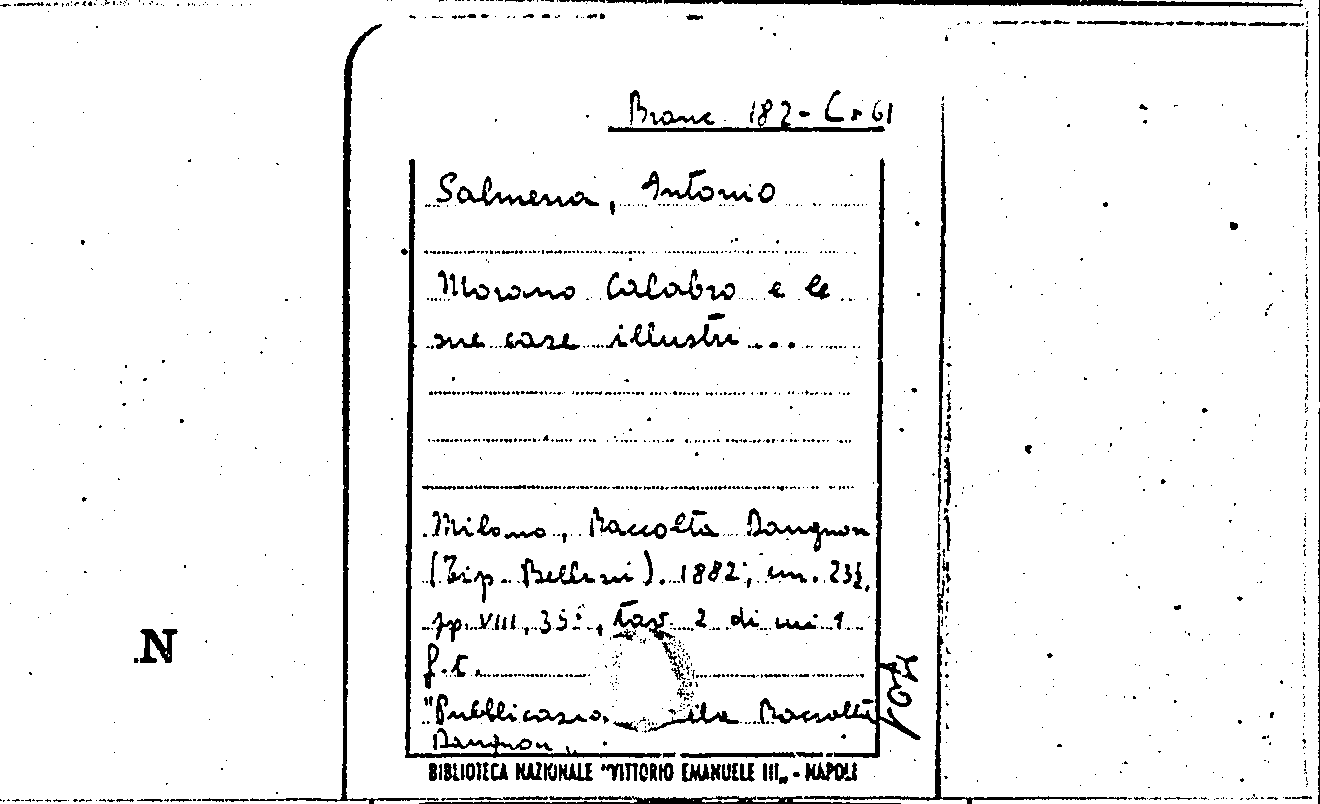 Branc. 182-C
Salmena, Antonio
Morano Calabro e le
sue case illustri...
Milano, Raccolta Dangnon
(Tip. Bellini). 1882; cm. 23½.
pp. VIII, 35, tav 2 di cui 1
f.t.
"Pubblicazio. Raccolta
Dangnon„
N
BIBLIOTECA NAZIONALE "VITTORIO EMANUELE III„ - NAPOLI